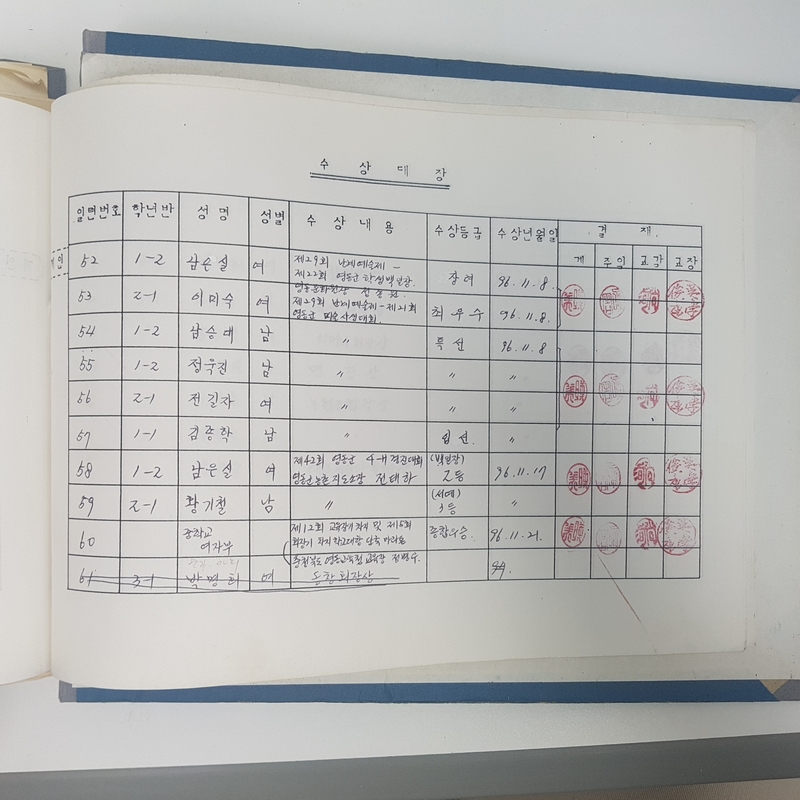 수 상 대 장
일련번호 학년반 성명 성별 수상내용 수상등급 수상년월일 결재
계 주임 교감 교장
52 1-2 남은실 여 제29회 난계예술제 - 장려 96.11.8.
제22회 영동군 학생백일장.
영동문화원장
53 2-1 이미숙 여 제29회 난계예술제 - 제21회 최우수 96.11.8.
영동군 미술사생대회.
54 1-2 남승대 남 〃 특선 96.11.8
55 1-2 정욱진 남 〃 〃
56 2-1 전길자 여 〃 〃 〃
57 1-1 김종학 남 입선. 〃
58 1-2 남은실 여 제42회 영동군 4-H 경진대회 (백일장) 96.11.17
영동군농촌지도소장 전태하 2등
59 2-1 황기철 남 〃 (서예) 〃
3등
60 중학교 제12회 교육장기차지 및 제5회 종합우승. 96.11.21.
여자부 회장기 차지 학교대항 단축마라톤
충청북도 영동교육청 교육장
61 3-1 박명희 여 동창회장상